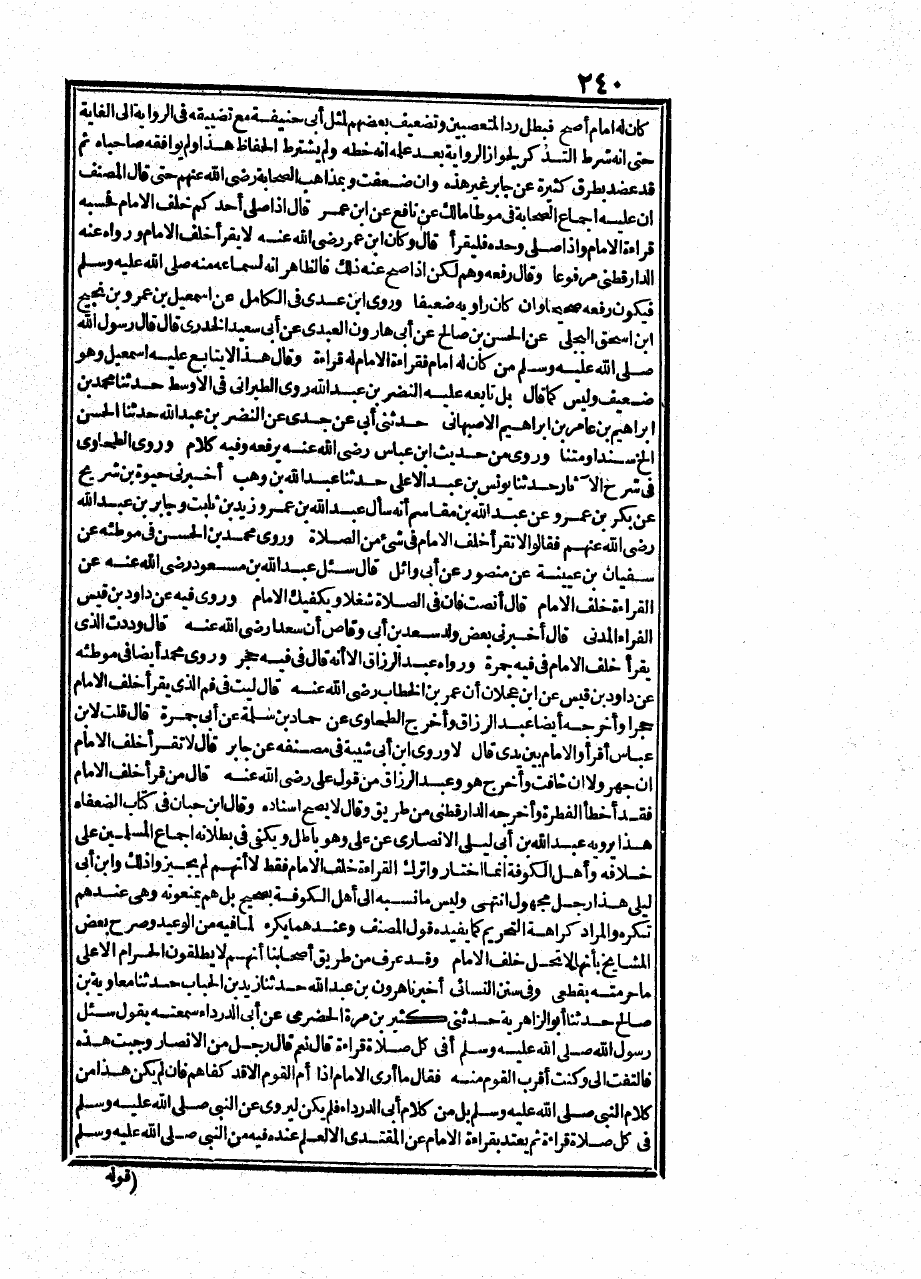 ٢٤٠
كان له امام أصح فبطل رد المتعصبين وتضعيف بعضهم لمثل أبى حنيفة مع تضييقه فى الرواية الى الغاية
حتى انه شرط التذكر لجواز الرواية بعد علمه انه خطه ولم يشترط الحفاظ هذا ولم يوافقه صاحباه ثم
قد عضد بطرق كثيرة عن جابر غير هذه وان ضعفت وبمذاهب الصحابة رضى الله عنهم حتى قال المصنف
ان عليه اجماع الصحابة فى موطا مالك عن نافع عن ابن عمر قال اذا صلى أحدكم خلف الامام فحسبه
قراءة الامام واذا صلى وحده فليقرأ قال وكان ابن عمر رضى الله عنه لا يقرأ خلف الامام ورواه عنه
الدارقطنى مرفوعا وقال رفعه وهم لكن اذا صح عنه ذلك فالظاهر انه لسماعه منه صلى الله عليه وسلم
فيكون رفعه صحيحا وان كان راويه ضعيفا وروى ابن عدى فى الكامل عن اسمعيل بن عمرو بن نجيح
ابن اسحق البجلى عن الحسن بن صالح عن أبى هارون العبدى عن أبى سعيد الخدرى قال قال رسول الله
صلى الله عليه وسلم من كان له امام فقراءة الامام له قراءة وقال هذا لا يتابع عليه اسمعيل وهو
ضعيف وليس كما قال بل تابعه عليه النضر بن عبد الله روى الطبرانى فى الاوسط حدثنا محمد بن
ابراهيم بن عامر بن ابراهيم الاصبهانى حدثنى أبى عن جدى عن النضر بن عبد الله حدثنا الحسن
الخ سندا ومتنا وروى من حديث ابن عباس رضى الله عنه يرفعه وفيه كلام وروى الطحاوى
فى شرح الآثار حدثنا يونس بن عبد الاعلى حدثنا عبد الله بن وهب أخبرنى حيوة بن شريح
عن بكر بن عمرو عن عبد الله بن مقاسم أنه سأل عبد الله بن عمرو زيد بن ثابت وجابر بن عبد الله
رضى الله عنهم فقالوا لا تقرأ خلف الامام فى شئ من الصلاة وروى محمد بن الحسن فى موطئه عن
سفيان بن عيينة عن منصور عن أبى وائل قال سئل عبد الله بن مسعود رضى الله عنه عن
القراءة خلف الامام قال أنصت فان فى الصلاة شغلا ويكفيك الامام وروى فيه عن داود بن قيس
الفراء المدنى قال أخبرنى بعض ولد سعد بن أبى وقاص أن سعدا رضى الله عنه قال وددت الذى
يقرأ خلف الامام فى فيه جمرة ورواه عبد الرزاق الا أنه قال فى فيه حجر وروى محمد أيضا فى موطئه
عن داود بن قيس عن ابن عجلان أن عمر بن الخطاب رضى الله عنه قال ليت فى فم الذى يقرأ خلف الامام
حجرا وأخرجه أيضا عبد الرزاق وأخرج الطحاوى عن حماد بن سلمة عن أبى جمرة قال قلت لابن
عباس أقرأ والامام بين يدى قال لا وروى ابن أبى شيبة فى مصنفه عن جابر قال لا تقرأ خلف الامام
ان جهر ولا ان خافت وأخرج هو وعبد الرزاق من قول على رضى الله عنه قال من قرأ خلف الامام
فقد أخطأ الفطرة وأخرجه الدارقطنى من طريق وقال لا يصح اسناده وقال ابن حبان فى كتاب الضعفاء
هذا يرويه عبد الله بن أبى ليلى الانصارى عن على وهو باطل ويكفى فى بطلانه اجماع المسلمين على
خلافه وأهل الكوفة انما اختاروا ترك القراءة خلف الامام فقط لا أنهم لم يجيزوا ذلك وابن أبى
ليلى هذا رجل مجهول انتهى وليس ما نسبه الى أهل الكوفة بصحيح بل هم يمنعونه وهى عندهم
تكره والمراد كراهة التحريم كما يفيده قول المصنف وعندهما يكره لما فيه من الوعيد وصرح بعض
المشايخ بأنها لا تحل خلف الامام وقد عرف من طريق أصحابنا أنهم لا يطلقون الحرام الا على
ما حرمته بقطعى وفى سنن النسائى أخبرنا هرون بن عبد الله حدثنا زيد بن الحباب حدثنا معاوية بن
صالح حدثنا أبو الزاهرية حدثنى كثير بن مرة الحضرمى عن أبى الدرداء سمعته يقول سئل
رسول الله صلى الله عليه وسلم أفى كل صلاة قراءة قال نعم قال رجل من الانصار وجبت هذه
فالتفت الى وكنت أقرب القوم منه فقال ما أرى الامام اذا أم القوم الا قد كفاهم فان لم يكن هذا من
كلام النبى صلى الله عليه وسلم بل من كلام أبى الدرداء فلم يكن ليروى عن النبى صلى الله عليه وسلم
فى كل صلاة قراءة ثم يعتد بقراءة الامام عن المقتدى الا لعلم عنده فيه من النبى صلى الله عليه وسلم
(قوله